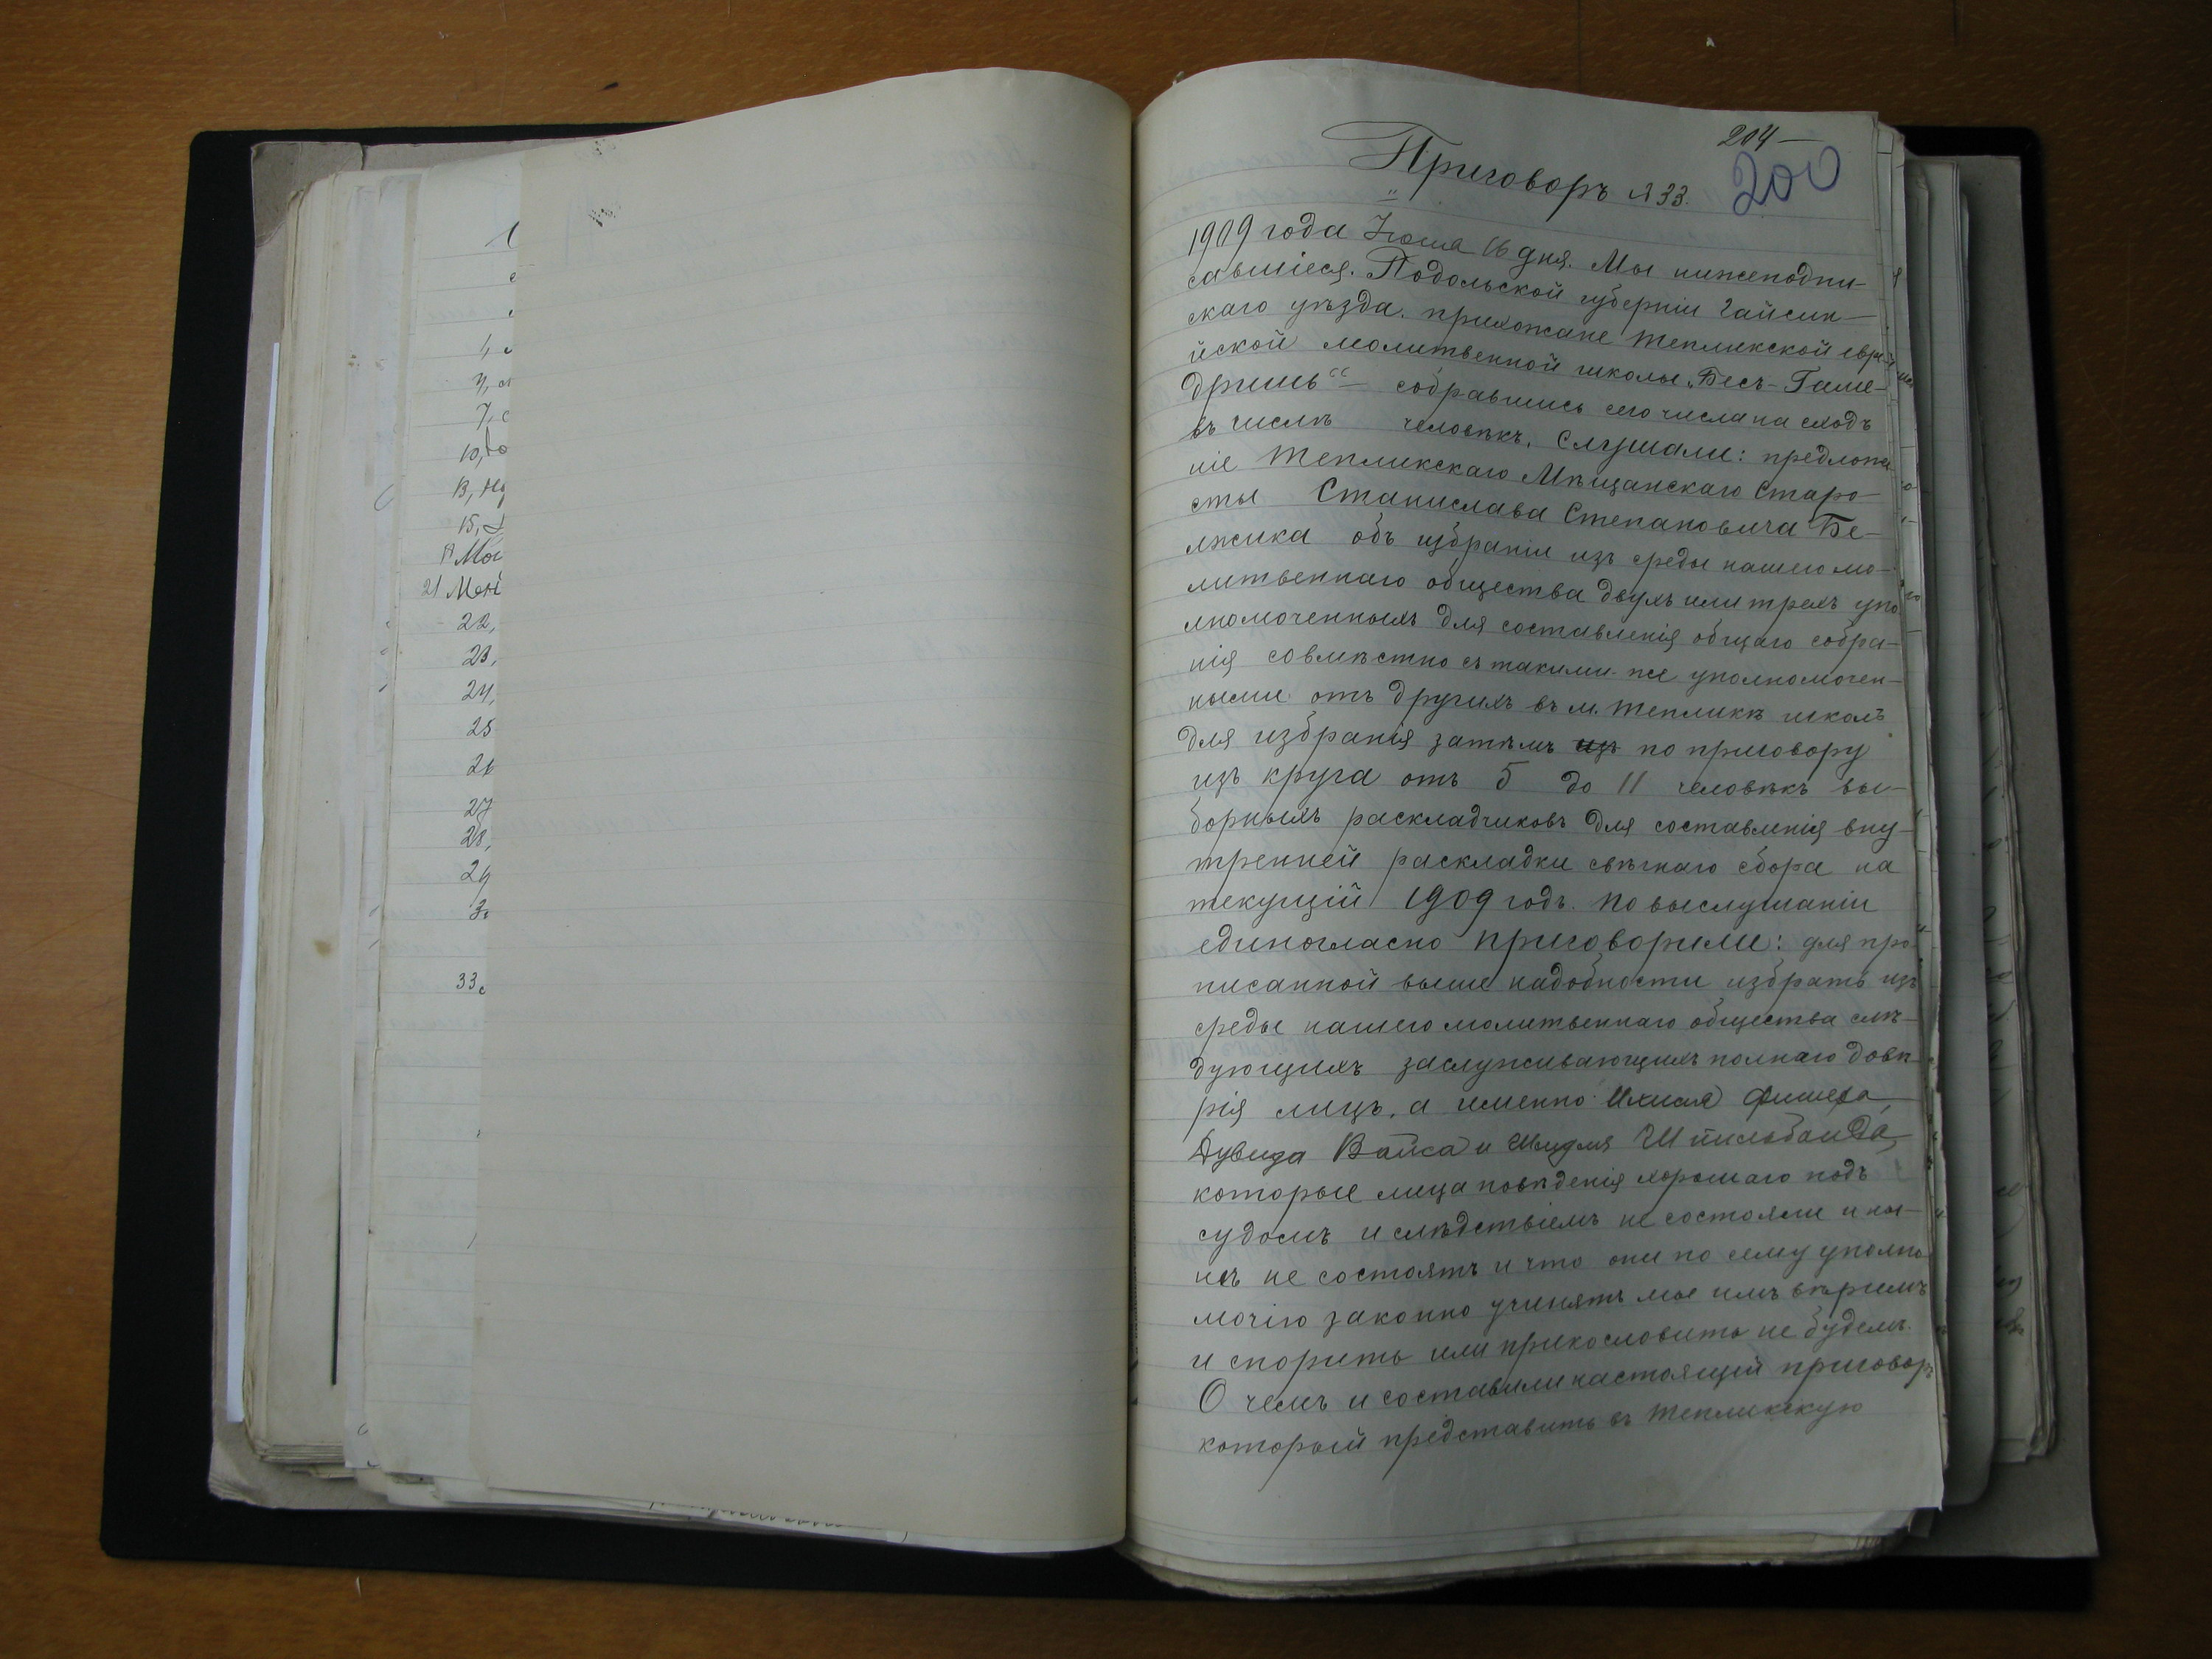 204—
200
Приговоръ №33.
1909 года Іюля 16 дня. Мы нижеподпи-
савшіеся. Подольской губерніи Гайсин-
скаго уѣзда. прихожане Тепликской евре-
йской молитвенной школы „Бесъ-Гаме-
дришъ“ — собравшись сего числа на сходъ
въ числѣ человѣкъ. Слушали: предложе
ніе Тепликскаго Мѣщанскаго Старо-
сты Станислава Степановича Бе-
лжика объ избраніи изъ среды нашего мо-
литвеннаго общества двухъ или трехъ упо
лномоченныхъ для составленія общаго собра-
нія совмѣстно съ такими-же уполномочен-
ными отъ другихъ въ м. Тепликѣ школъ
для избранія затѣмъ изъ по приговору
изъ круга отъ 5 до 11 человѣкъ вы-
борныхъ раскладчиковъ для составленія вну-
тренней раскладки свѣчнаго сбора на
текущій 1909 годъ. По выслушаніи
единогласно приговорили: для про
писанной выше надобности избрать изъ
среды нашего молитвеннаго общества слѣ-
дующихъ заслуживающихъ полнаго довѣ-
рія лицъ, а именно Фишера,
Дувида Вайса и Штильбанда,
которые лица поведенія хорошаго подъ
судомъ и слѣдствіемъ не состояли и ны-
нѣ не состоятъ и что они по сему уполно
мочію законно учинятъ мы имъ вѣримъ
и спорить или прикословить не будемъ.
О чемъ и составили настоящій приговоръ
который представить въ Тепликскую
1,
7,
10, до
13,
15,
21
22,
23,
24,
25
27
28,
33